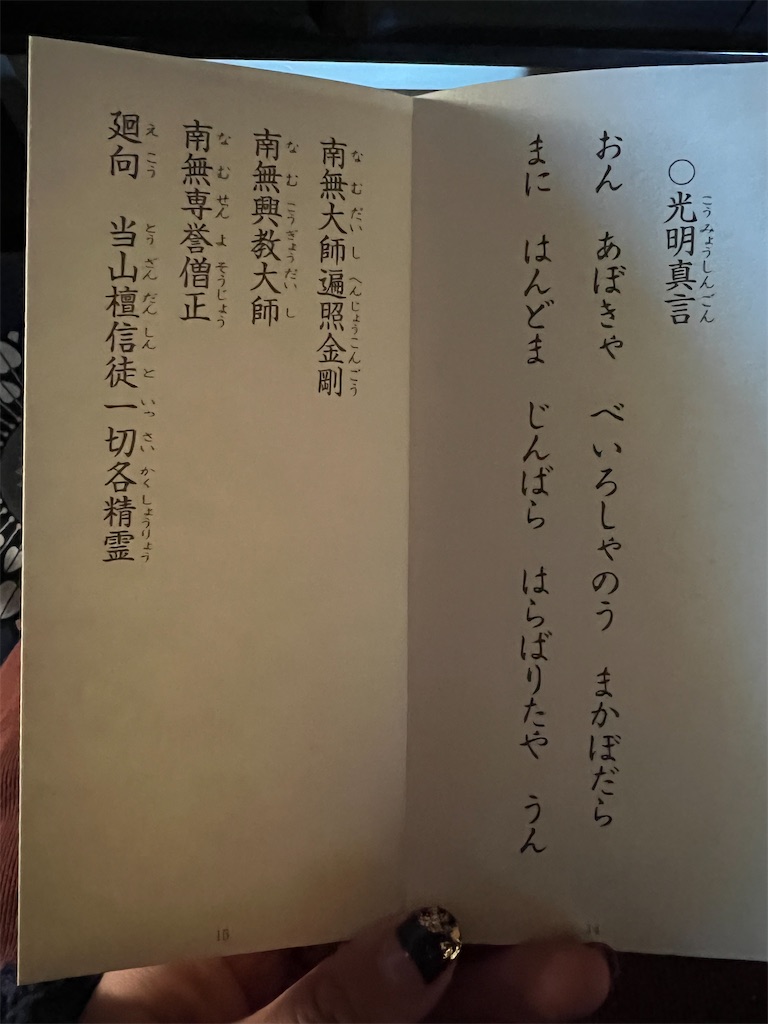 ○光明真言
こうみょうしんごん
おん あぼきゃ べいろしゃのう まかぼだら
まに はんどま じんばら はらばりたや うん
南無大師遍照金剛
なむだいしへんじょうこんごう
南無興教大師
なむこうぎょうだいし
南無専誉僧正
なむせんよそうじょう
廻向 当山檀信徒一切各精霊
えこう とうざんだんしんといっさいかくしょうりょう